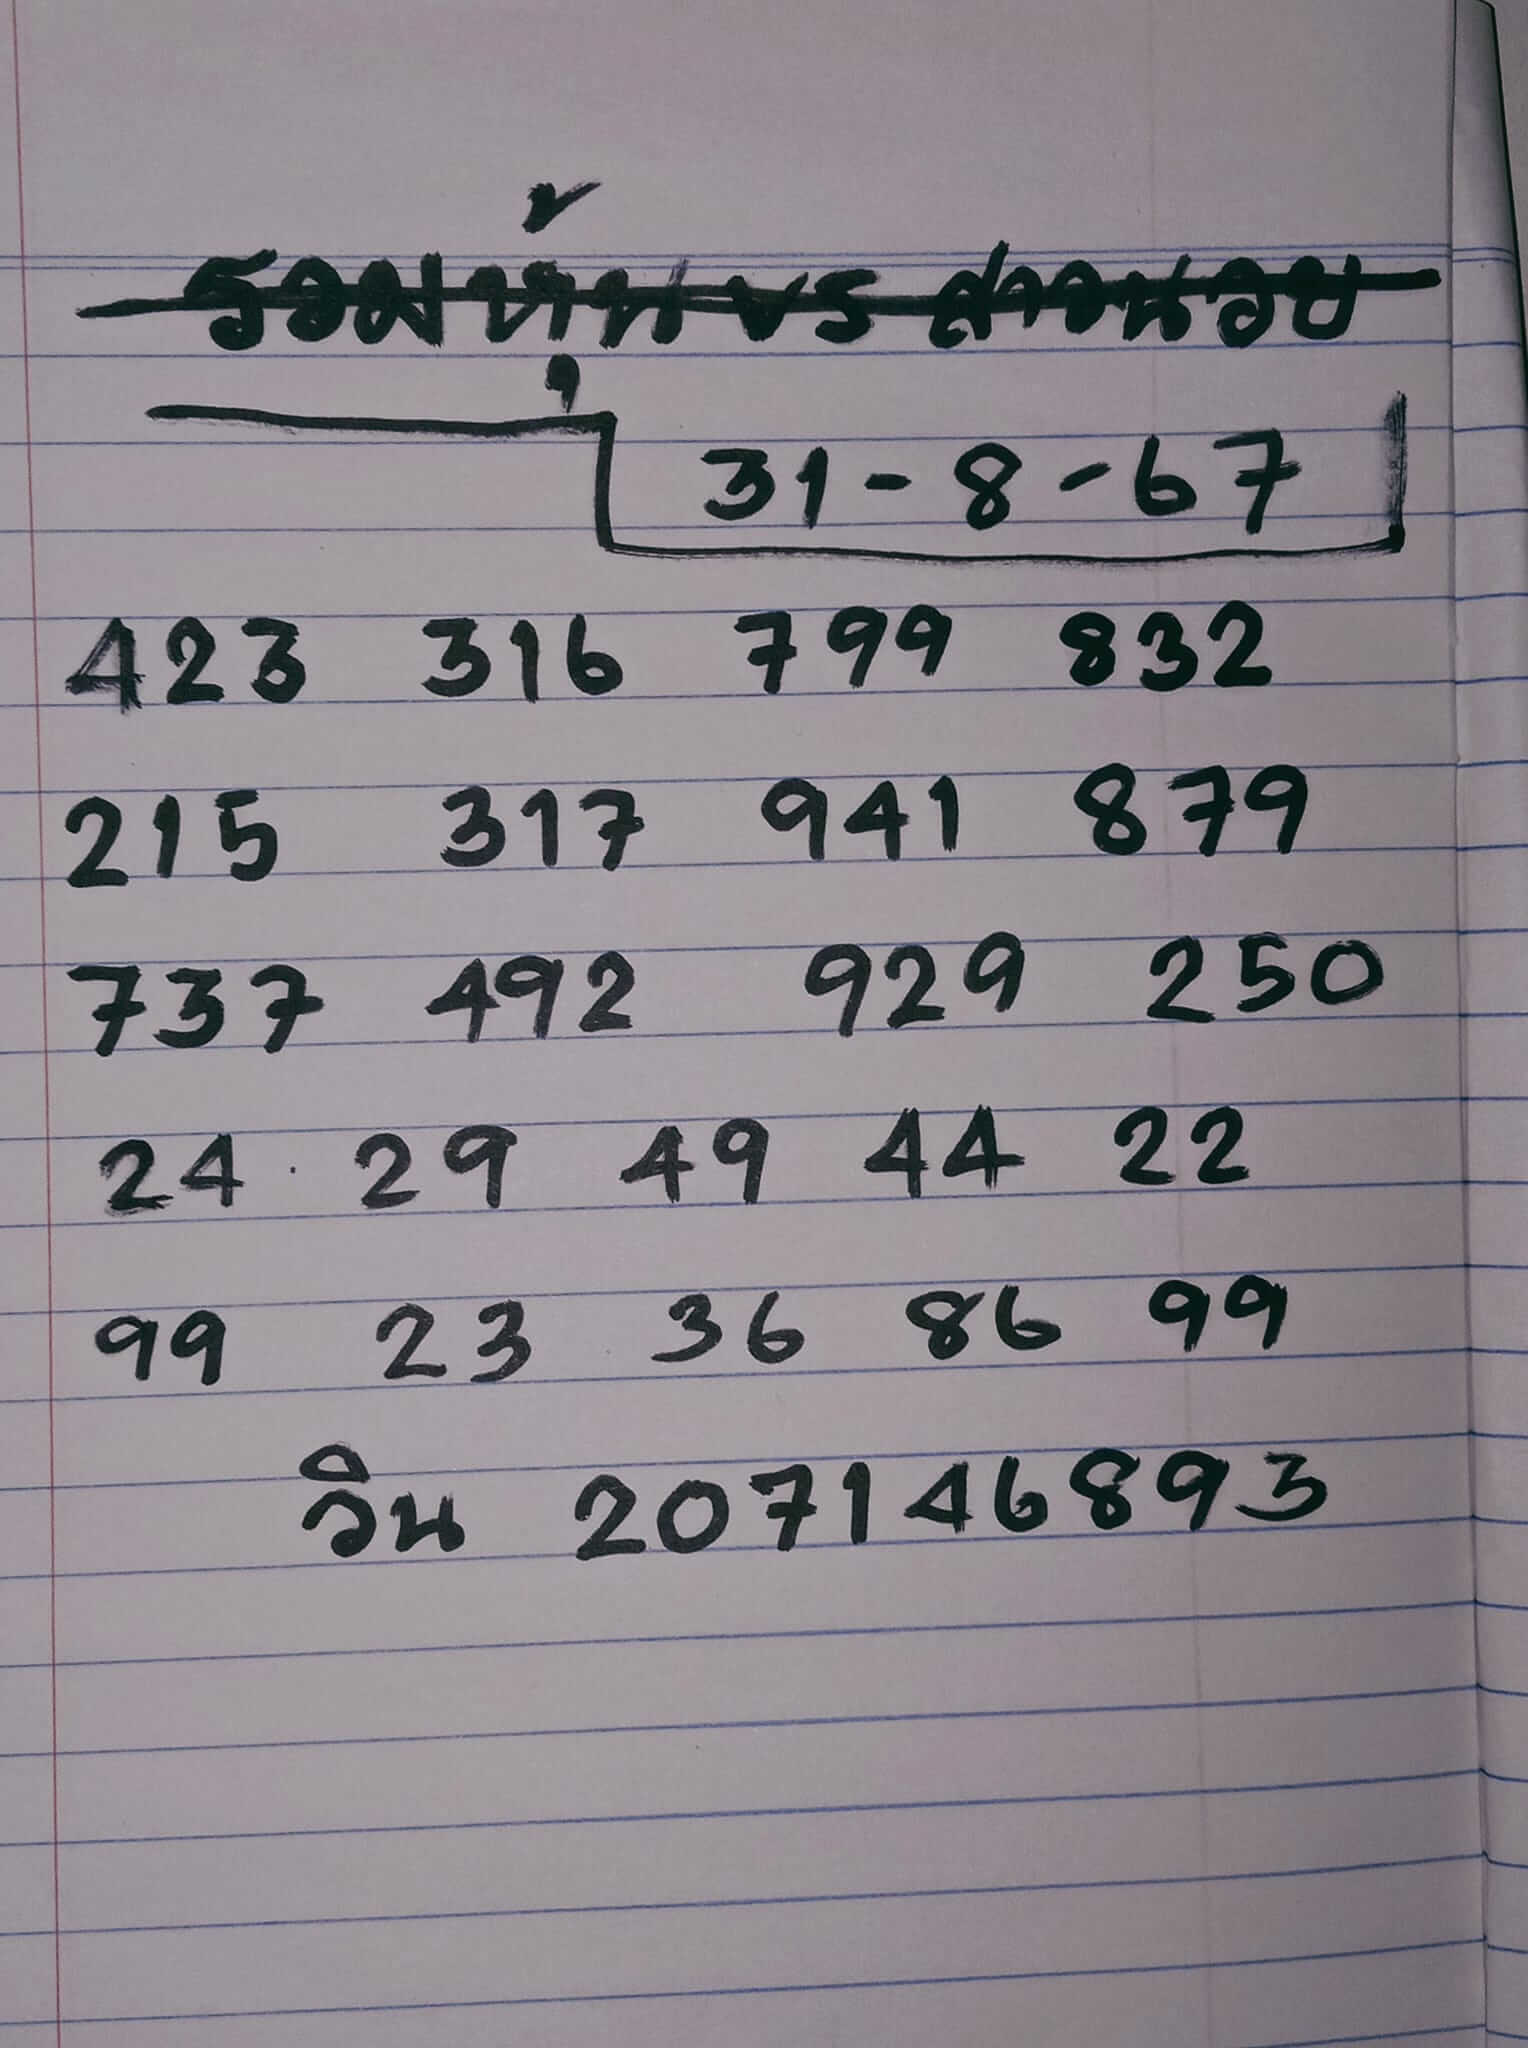 รวมหุ้น vs สาวนวย
31-8-67
423 316 799 832
215 317 941 879
737 492 929 250
24 29 49 44 22
99 23 36 86 99
วิน 207146893